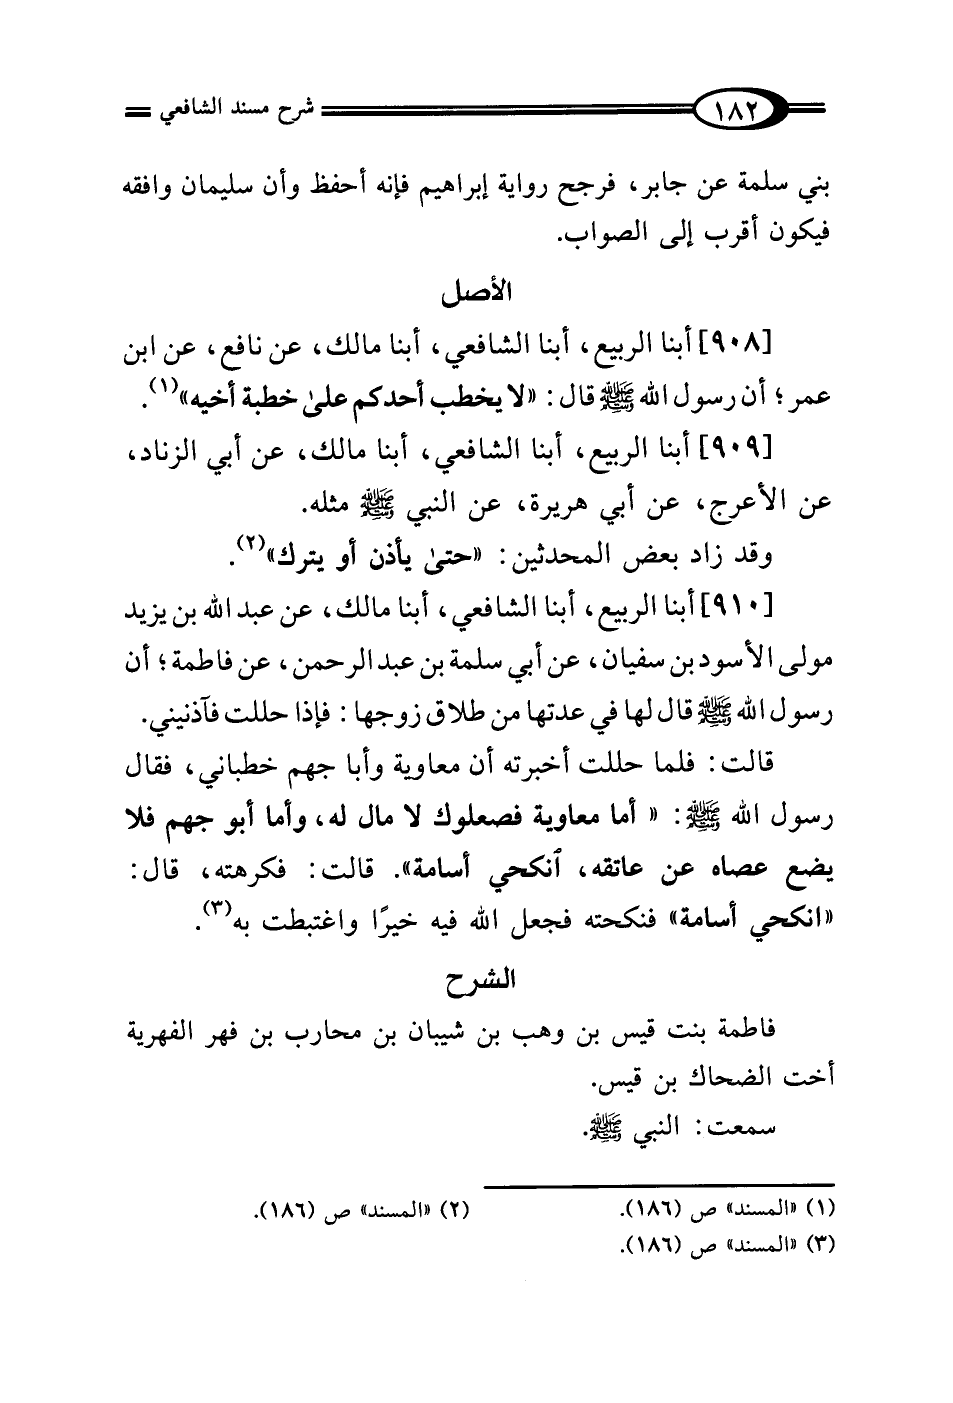 ١٨٢ شرح مسند الشافعي
بني سلمة عن جابر، فرجح رواية إبراهيم فإنه أحفظ وأن سليمان وافقه
فيكون أقرب إلى الصواب.
الأصل
[٩٠٨] أبنا الربيع، أبنا الشافعي، أبنا مالك، عن نافع، عن ابن
عمر؛ أن رسول الله ﷺ قال: «لا يخطب أحدكم علىٰ خطبة أخيه»(١).
[٩٠٩] أبنا الربيع، أبنا الشافعي، أبنا مالك، عن أبي الزناد،
عن الأعرج، عن أبي هريرة، عن النبي ﷺ مثله.
وقد زاد بعض المحدثين: «حتىٰ يأذن أو يترك»(٢).
[٩١٠] أبنا الربيع، أبنا الشافعي، أبنا مالك، عن عبد الله بن يزيد
مولى الأسود بن سفيان، عن أبي سلمة بن عبد الرحمن، عن فاطمة؛ أن
رسول الله ﷺ قال لها في عدتها من طلاق زوجها: فإذا حللت فآذنيني.
قالت: فلما حللت أخبرته أن معاوية وأبا جهم خطباني، فقال
رسول الله ﷺ: « أما معاوية فصعلوك لا مال له، وأما أبو جهم فلا
يضع عصاه عن عاتقه، ٱنكحي أسامة». قالت: فكرهته، قال:
«انكحي أسامة» فنكحته فجعل الله فيه خيرًا واغتبطت به(٣).
الشرح
فاطمة بنت قيس بن وهب بن شيبان بن محارب بن فهر الفهرية
أخت الضحاك بن قيس.
سمعت: النبي ﷺ.
(١) «المسند» ص (١٨٦). (٢) «المسند» ص (١٨٦).
(٣) «المسند» ص (١٨٦).